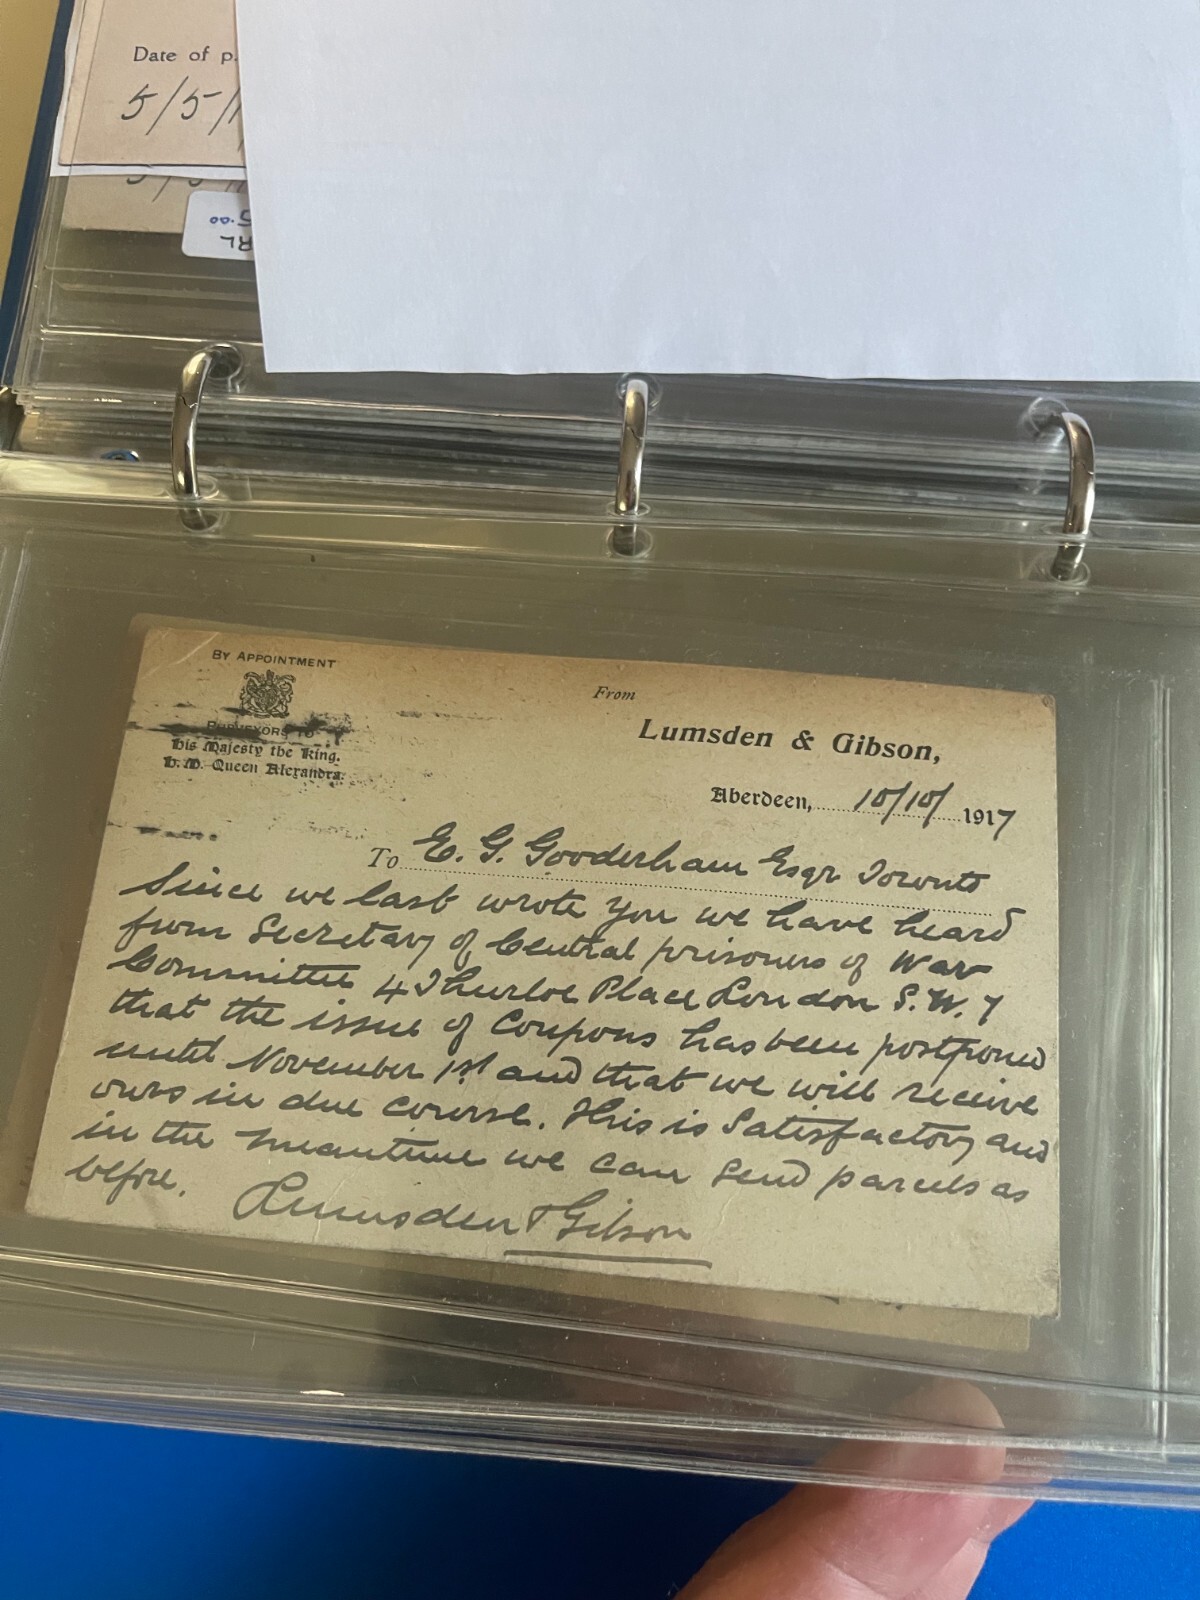 Date of p
5/5/1
5.00
RL
BY APPOINTMENT
PURVEYORS TO
His Majesty the King.
H.M. Queen Alexandra.
From
Lumsden & Gibson,
Aberdeen, 10/10/ 1917
To E. G. Gooderham Esqr Toronto
Since we last wrote you we have heard
from Secretary of Central prisoners of War
Committee 4 Thurloe Place London S.W.7
that the issue of coupons has been postponed
until November 1st and that we will receive
ours in due course. This is Satisfactory and
in the meantime we can send parcels as
before.
Lumsden & Gibson